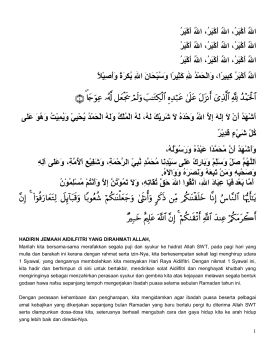 اللهُ أَكْبَرُ، اللهُ أَكْبَرُ، اللهُ أَكْبَرُ
اللهُ أَكْبَرُ، اللهُ أَكْبَرُ، اللهُ أَكْبَرُ
اللهُ أَكْبَرُ، اللهُ أَكْبَرُ، اللهُ أَكْبَرُ
اللهُ أَكْبَرُ كَبِيرًا، وَالْحَمْدُ لِلَّهِ كَثِيرًا وَسُبْحَانَ اللهِ بُكْرَةً وَأَصِيلًا
ٱلْحَمْدُ لِلَّهِ ٱلَّذِىٓ أَنزَلَ عَلَىٰ عَبْدِهِ ٱلْكِتَـٰبَ وَلَمْ يَجْعَل لَّهُۥ عِوَجَا
أَشْهَدُ أَنْ لَا إِلَهَ إِلَّا اللهُ وَحْدَهُ لَا شَرِيكَ لَهُ، لَهُ الْمُلْكُ وَلَهُ الْحَمْدُ يُحْيِيْ وَيُمِيْتُ وَهُوَ عَلَى
كُلِّ شَيْءٍ قَدِيْرٌ
وَأَشْهَدُ أَنَّ مُحَمَّدًا عَبْدُهُ وَرَسُوْلُهُ،
اللَّهُمَّ صَلِّ وَسَلِّمْ وَبَارِكْ عَلَى سَيِّدِنَا مُحَمَّدٍ نَبِيِّ الرَّحْمَةِ، وَشَفِيْعِ الأُمَّةِ، وَعَلَى آلِهِ
وَصَحْبِهِ وَمَنْ تَبِعَهُ وَنَصَرَهُ وَوَالَاهُ.
أَمَّا بَعْدُ فَيَا عِبَادَ اللهِ، اتَّقُوْا اللهَ حَقَّ تُقَاتِهِ، وَلَا تَمُوْتُنَّ إِلَّا وَأَنْتُمْ مُسْلِمُوْنَ
يَـٰٓأَيُّهَا ٱلنَّاسُ إِنَّا خَلَقْنَـٰكُم مِّن ذَكَرٍ وَأُنثَىٰ وَجَعَلْنَـٰكُمْ شُعُوبًا وَقَبَآئِلَ لِتَعَارَفُوٓا۟ إِنَّ
أَكْرَمَكُمْ عِندَ ٱللَّهِ أَتْقَىٰكُمْ إِنَّ ٱللَّهَ عَلِيمٌ خَبِيرٌ
HADIRIN JEMAAH AIDILFITRI YANG DIRAHMATI ALLAH,
Marilah kita bersama-sama merafakkan segala puji dan syukur ke hadrat Allah SWT, pada pagi hari yang
mulia dan barakah ini kerana dengan rahmat serta izin-Nya, kita berkesempatan sekali lagi menghirup udara
1 Syawal, yang dengannya membolehkan kita merayakan Hari Raya Aidilfitri. Dengan nikmat 1 Syawal ini,
kita hadir dan berhimpun di sini untuk bertakbir, mendirikan solat Aidilfitri dan menghayati khutbah yang
mengiringinya sebagai menzahirkan perasaan syukur dan gembira kita atas kejayaan melawan segala bentuk
godaan hawa nafsu sepanjang tempoh mengerjakan ibadah puasa selama sebulan Ramadan yang baru lalu.
Dengan perasaan kehambaan dan pengharapan, kita mengadahkan agar ibadah puasa beserta pelbagai
amal kebajikan yang dikerjakan sepanjang bulan Ramadan yang baru berlalu pergi itu diterima Allah SWT
serta diampunkan dosa-dosa kita, seterusnya berhasil mengubah cara dan gaya hidup kita ke arah hidup
yang lebih baik dan diredai-Nya.
1